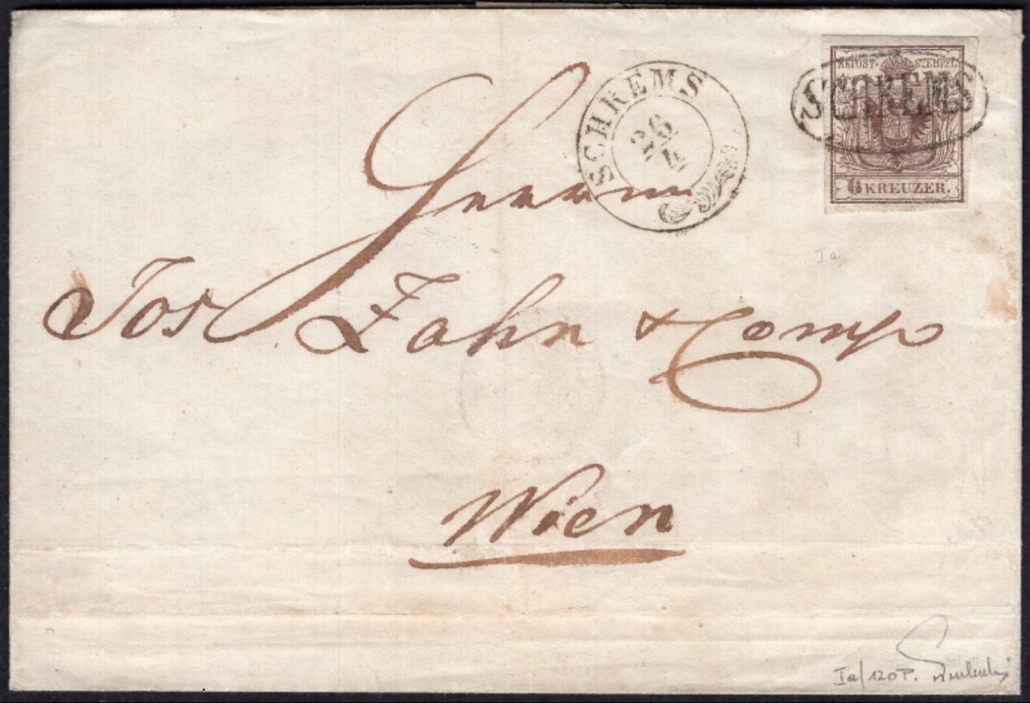 KKPOST-STEMPEL
SCHREMS
6 KREUZER.
SCHREMS
26
4
Herrn
Jos Zahn & Comp
Wien
Ia
Ia/120P.